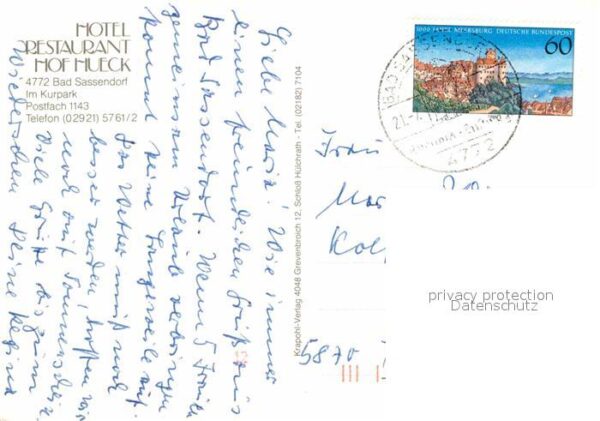 HOTEL
RESTAURANT
HOF HUECK
4772 Bad Sassendorf
Im Kurpark
Postfach 1143
Telefon (02921) 5761/2
Liebe Maria! Wie immer
einen freundlichen Gruß aus
Bad Sassendorf. Wenn 5 Frauen
gemeinsam Urlaub verbringen
kommt keine Langeweile auf.
Das Wetter muß noch
besser werden, hoffen wir
noch auf Sonnenschein.
Viele Grüße bis zum
Wiedersehen Deine Regina
Krapohl-Verlag 4048 Grevenbroich 12, Schloß Hülchrath - Tel. (02182) 7104
1000 JAHRE MEERSBURG DEUTSCHE BUNDESPOST
60
BAD SASSEN
21.-
4772
Frau
Kol
5870
privacy protection
Datenschutz